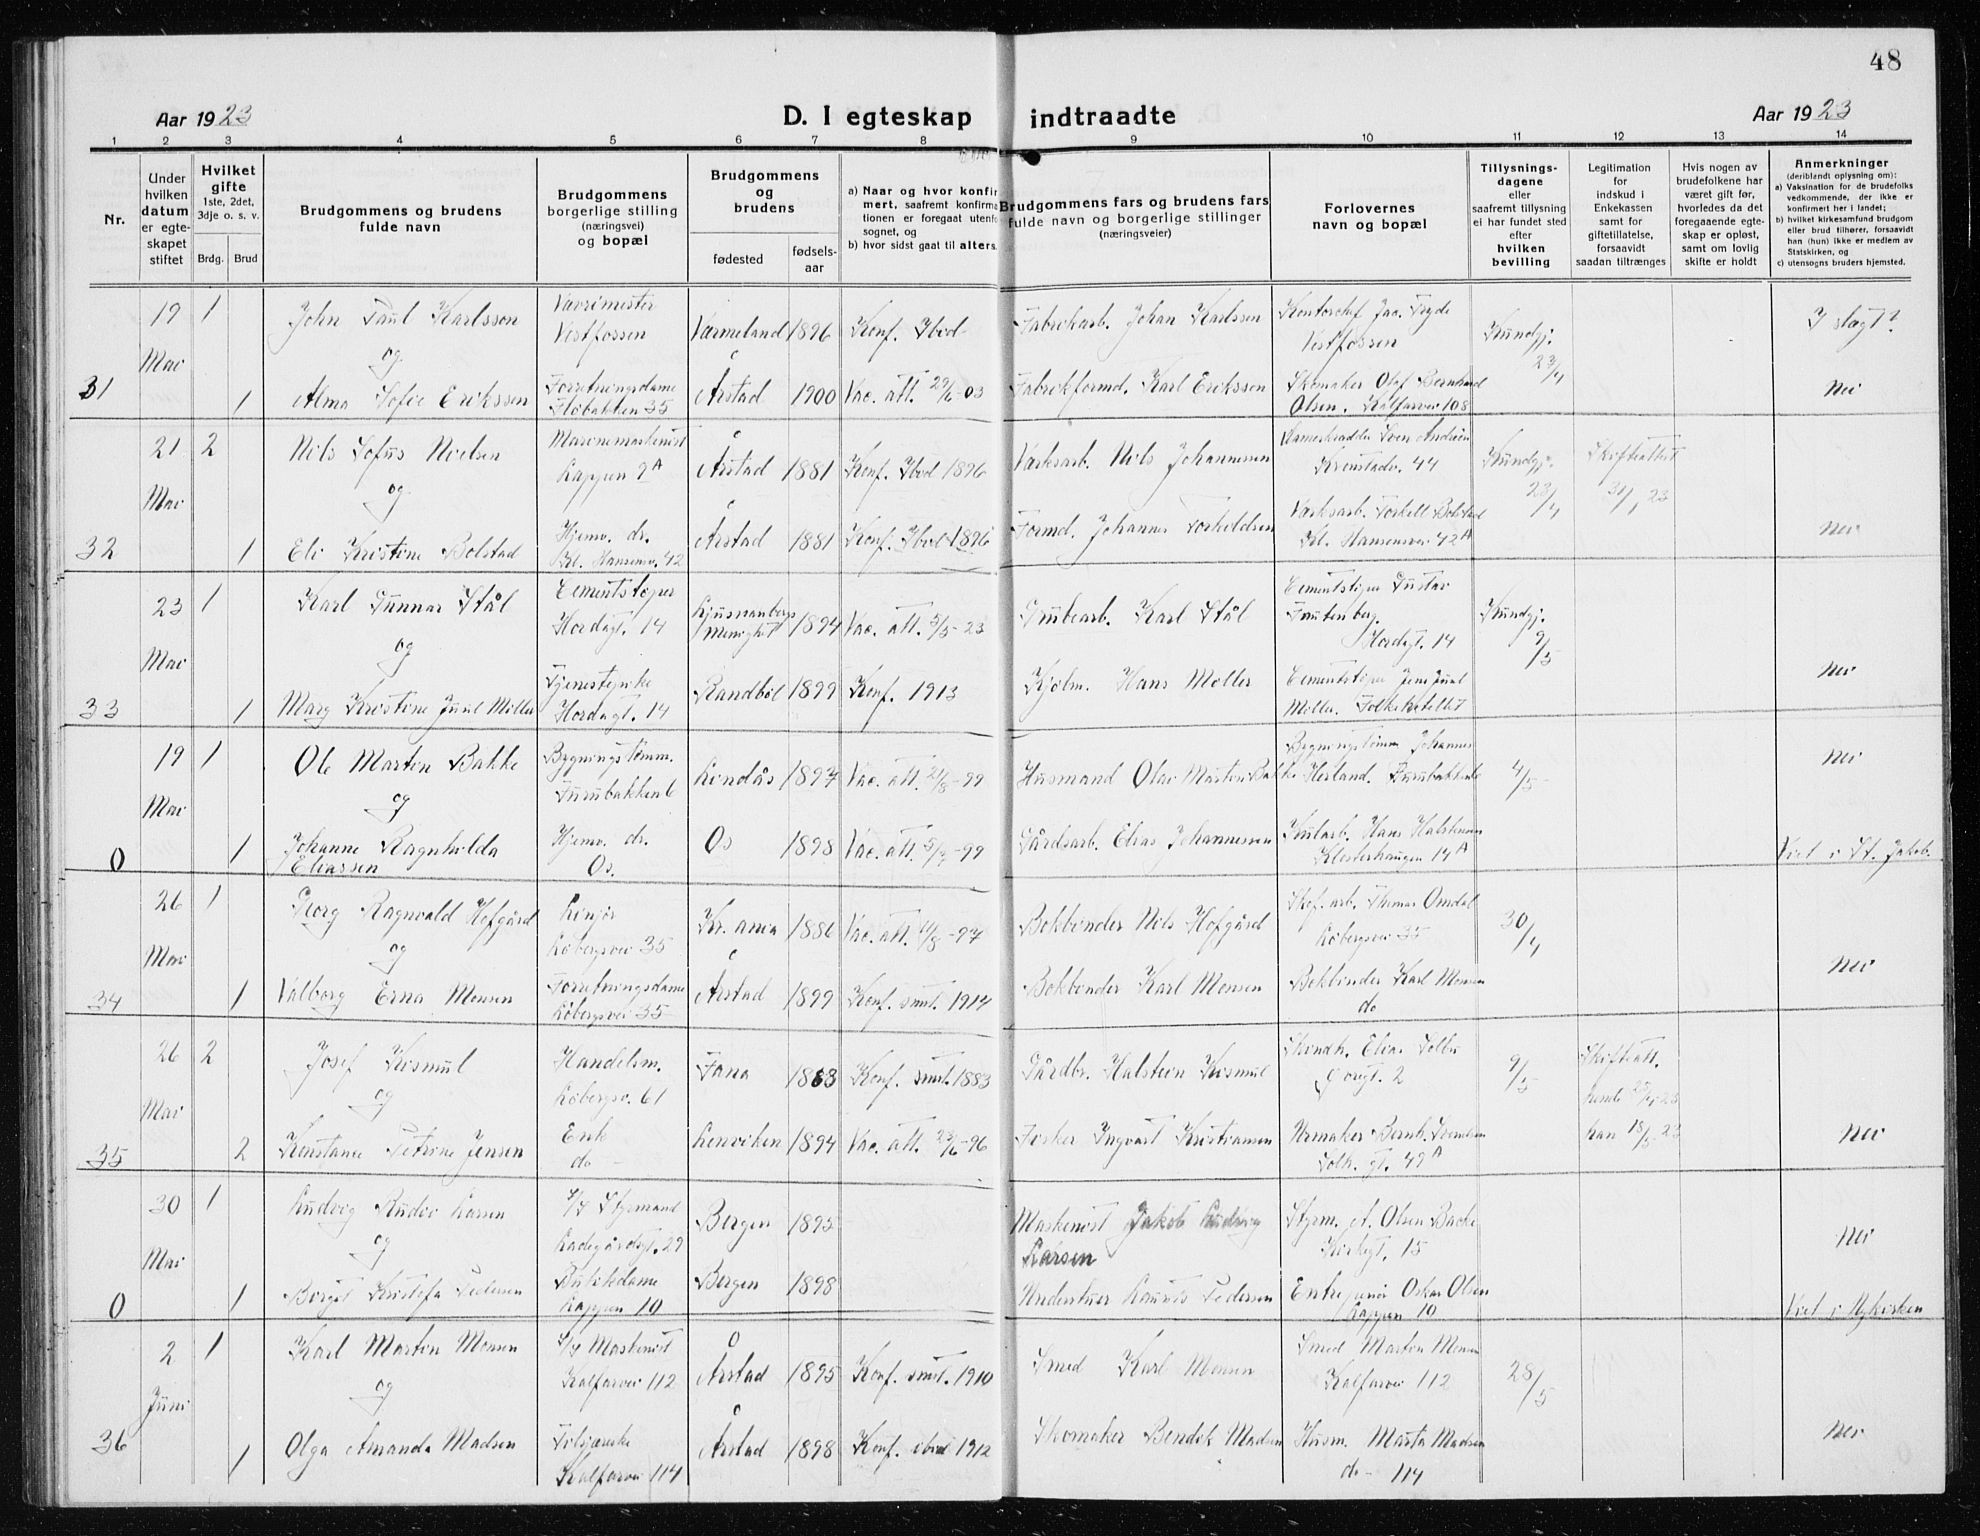 48
Aar 1923
D. I egteskap indtraadte
Aar 1923
1 2 3 4 5 6 7 8 9 10 11 12 13 14
Nr.
Under hvilken datum er egteskapet stiftet
Hvilket gifte 1ste, 2det, 3dje o. s. v.
Brdg. Brud
Brudgommens og brudens fulde navn
Brudgommens borgerlige stilling (næringsvei) og bopæl
Brudgommens og brudens
fødested
fødselsaar
a) Naar og hvor konfirmert, saafremt konfirmationen er foregaat utenfor sognet, og
b) hvor sidst gaat til alters.
Brudgommens fars og brudens fars fulde navn og borgerlige stillinger (næringsveier)
Forlovernes navn og bopæl
Tillysningsdagene eller saafremt tillysning ei har fundet sted efter hvilken bevilling
Legitimation for indskud i Enkekassen samt for giftetillatelse, forsaavidt saadan tiltrænges
Hvis nogen av brudefolkene har været gift før, hvorledes da det foregaaende egteskap er opløst, samt om lovlig skifte er holdt
Anmerkninger
(deriblandt oplysning om):
a) Vaksination for de brudefolks vedkommende, der ikke er konfirmert her i landet;
b) hvilket kirkesamfund brudgom eller brud tilhører, forsaavidt han (hun) ikke er medlem av Statskirken, og
c) utensogns bruders hjemsted.
19 Mai 1 John Paul Karlsson Vævrimester Vestfossen Værmeland 1896 Konf. Ibid Fabrikarb. Johan Karlssen Kontorchef Jac. Tryde Vestfossen Kundgj. 23/4 I slægt?
og
31 1 Alma Sofie Erikssen Forretningsdame Fløibakken 35 Årstad 1900 Vac. att. 29/6-03 Fabrikformd. Karl Erikssen Skomaker Olaf Bernhard Olsen, Kalfarvei 108 Nei
21 Mai 2 Nils Sofus Nielsen Marinemaskinist Lappen 9A Årstad 1881 Konf. Ibid 1896 Værksarb. Nils Johannessen Sven Kronstadv. 44 Kundgj. 23/4 Skifteattest 31/1 23
og
32 1 Eli Kristine Bolstad Hjemv. dr. Kl. Hansensv. 42 Årstad 1881 Konf. Ibid 1896 Formd. Johannes Torkildsen Værksarb. Torkell Bolstad Kl. Hansensvei 42A Nei
23 Mai 1 Karl Gunnar Stål Cementstøper Hordagt. 14 Ljusnanbergs Menighet 1894 Vac. att. 5/5-23 Grubearb. Karl Stål Cementstøper Gustav Fautenberg. Hordagt. 14 Kundgj. 9/5
og
33 1 Marg Kristine Juul Møller Tjenestepike Hordagt. 14 Randbøl 1899 Konf. 1913 Kjølm. Hans Møller Cementstøper Jens Juul Møller. Folkehotellet Nei
19 Mai 1 Ole Martin Bakke Bygningstømm. Furubakken 6 Lindås 1897 Vac. att. 21/8-99 Husmand Olai Martin Bakke Bygningstømm Johannes Herland. Furubakken 6 4/5 Nei
og
0 1 Johanne Ragnhilda Eliassen Hjemv. dr. Os. Os 1898 Vac. att. -99 Gårdsarb. Elias Johannessen Kularb. Hans Halstensen Klosterhaugen 14A Viet i St. Jakob.
26 Mai 1 Georg Ragnvald Hofgård Løbergsvei 35 Kr.ania 1886 Vac. att. -97 Bokbinder Nils Hofgård Skof. arb. Thomas Omdal Løbergsvei 35 30/4
og
34 1 Valborg Erna Monsen Forretningsdame Løbergsvei 35 Årstad 1899 Konf. smst. 1914 Bokbinder Karl Monsen Bokbinder Karl Monsen do Nei
26 Mai 2 Josef Kismul Handelsm. Løbergsv. 61 Fana 1868 Konf. smst. 1883 Gårdbr. Halstein Kismul Elias Solli 2 9/5 Skifteatt. hende 25/4-23
og
35 2 Konstanse Petrine Jensen Enk do Lenviken 1894 Vac. att. 23/6-96 Fisker Ingvart Kristiansen Urmaker Bernh. Solh. gt. 49A han 18/5-23 Nei
30 Mai 1 Ludvig Rudev Larsen Styrmand Ladegårdsgt. 29 Bergen 1895 Maskinist Jakob Ludvig Larsen Styrm. A. Olsen Bache Kirkegt. 15 Nei
og
0 1 Birgit Kristofa Pedersen Butikdame Lappen 10 Bergen 1898 Laurits Pedersen Entrepenør Oskar Olsen Lappen 10 Viet i Nykirken
2 Juni 1 Karl Martin Monsen Maskinist Kalfarvei 112 Årstad 1895 Konf. smst. 1910 Smed Karl Monsen Smed Martin Monsen Kalfarvei 112 28/5
og
36 1 Olga Amanda Madsen Kalfarvei 114 Årstad 1898 Konf. ibid 1912 Skomaker Bendik Madsen Husm. Marta Madsen do - 114 Nei